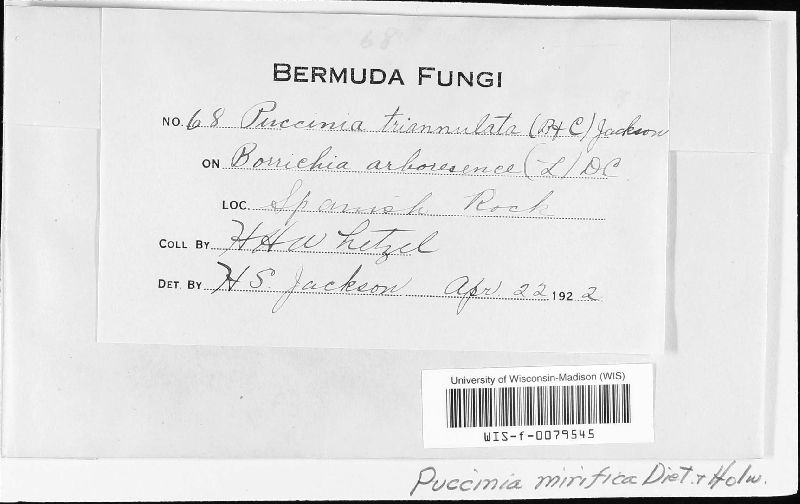 68
BERMUDA FUNGI
NO. 68 Puccinia triannulata (B+C) Jackson
ON Borrichia arboresence (L) DC
LOC. Spanish Rock
COLL BY HH Whetzel
DET. BY HS. Jackson Apr 22 1922
University of Wisconsin-Madison (WIS)
WIS-f-0079545
Puccinia mirifica Diet. + Holw.